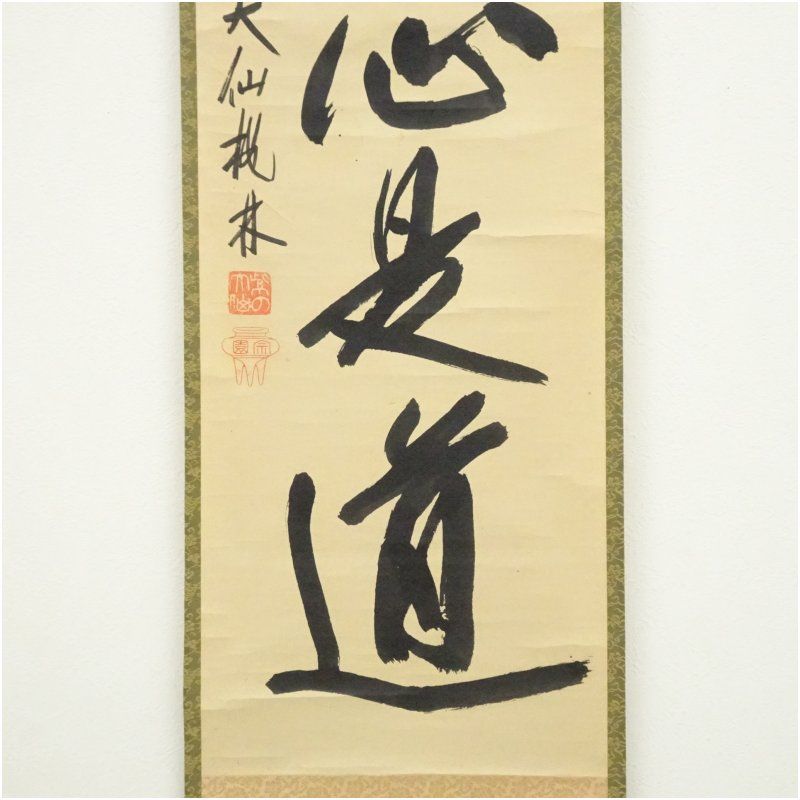 心是道
大仙槐林